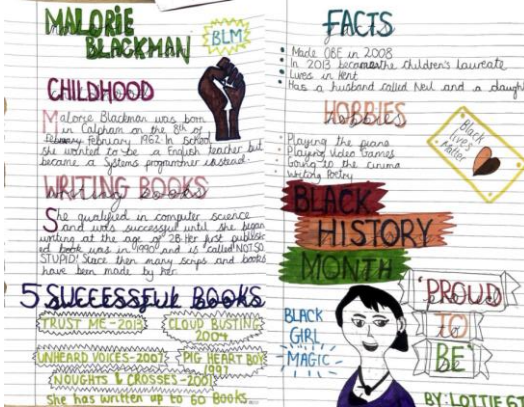 MALORIE
BLACKMAN
BLM
CHILDHOOD
Malorie Blackman was born
in Calpham on the 8th of
February 1962. In School
she wanted to be a English teacher but
became a Systems programmer instead.
WRITING BOOKS
She qualified in computer science
and was successful until she began
writing at the age of 28. Her first publish
ed book was in 1990 and is called NOT SO
STUPID! Since then many scrips and books
have been made by her.
5 SUCCESSFUL BOOKS
TRUST ME - 2013
CLOUD BUSTING
2004
UNHEARD VOICES - 2007
PIG HEART BOY
1997
NOUGHTS & CROSSES - 2001
She has written up to 60 Books.
FACTS
Made OBE in 2008
In 2013 became the children's laureate
Lives in Kent
Has a husband called Neil and a daugh
HOBBIES
Playing the piano
Playing Video Games
Going to the cinima
Writing Poetry
Black
Lives
Matter
BLACK
HISTORY
MONTH
BLACK
GIRL
MAGIC
PROUD
TO
BE
BY: LOTTIE